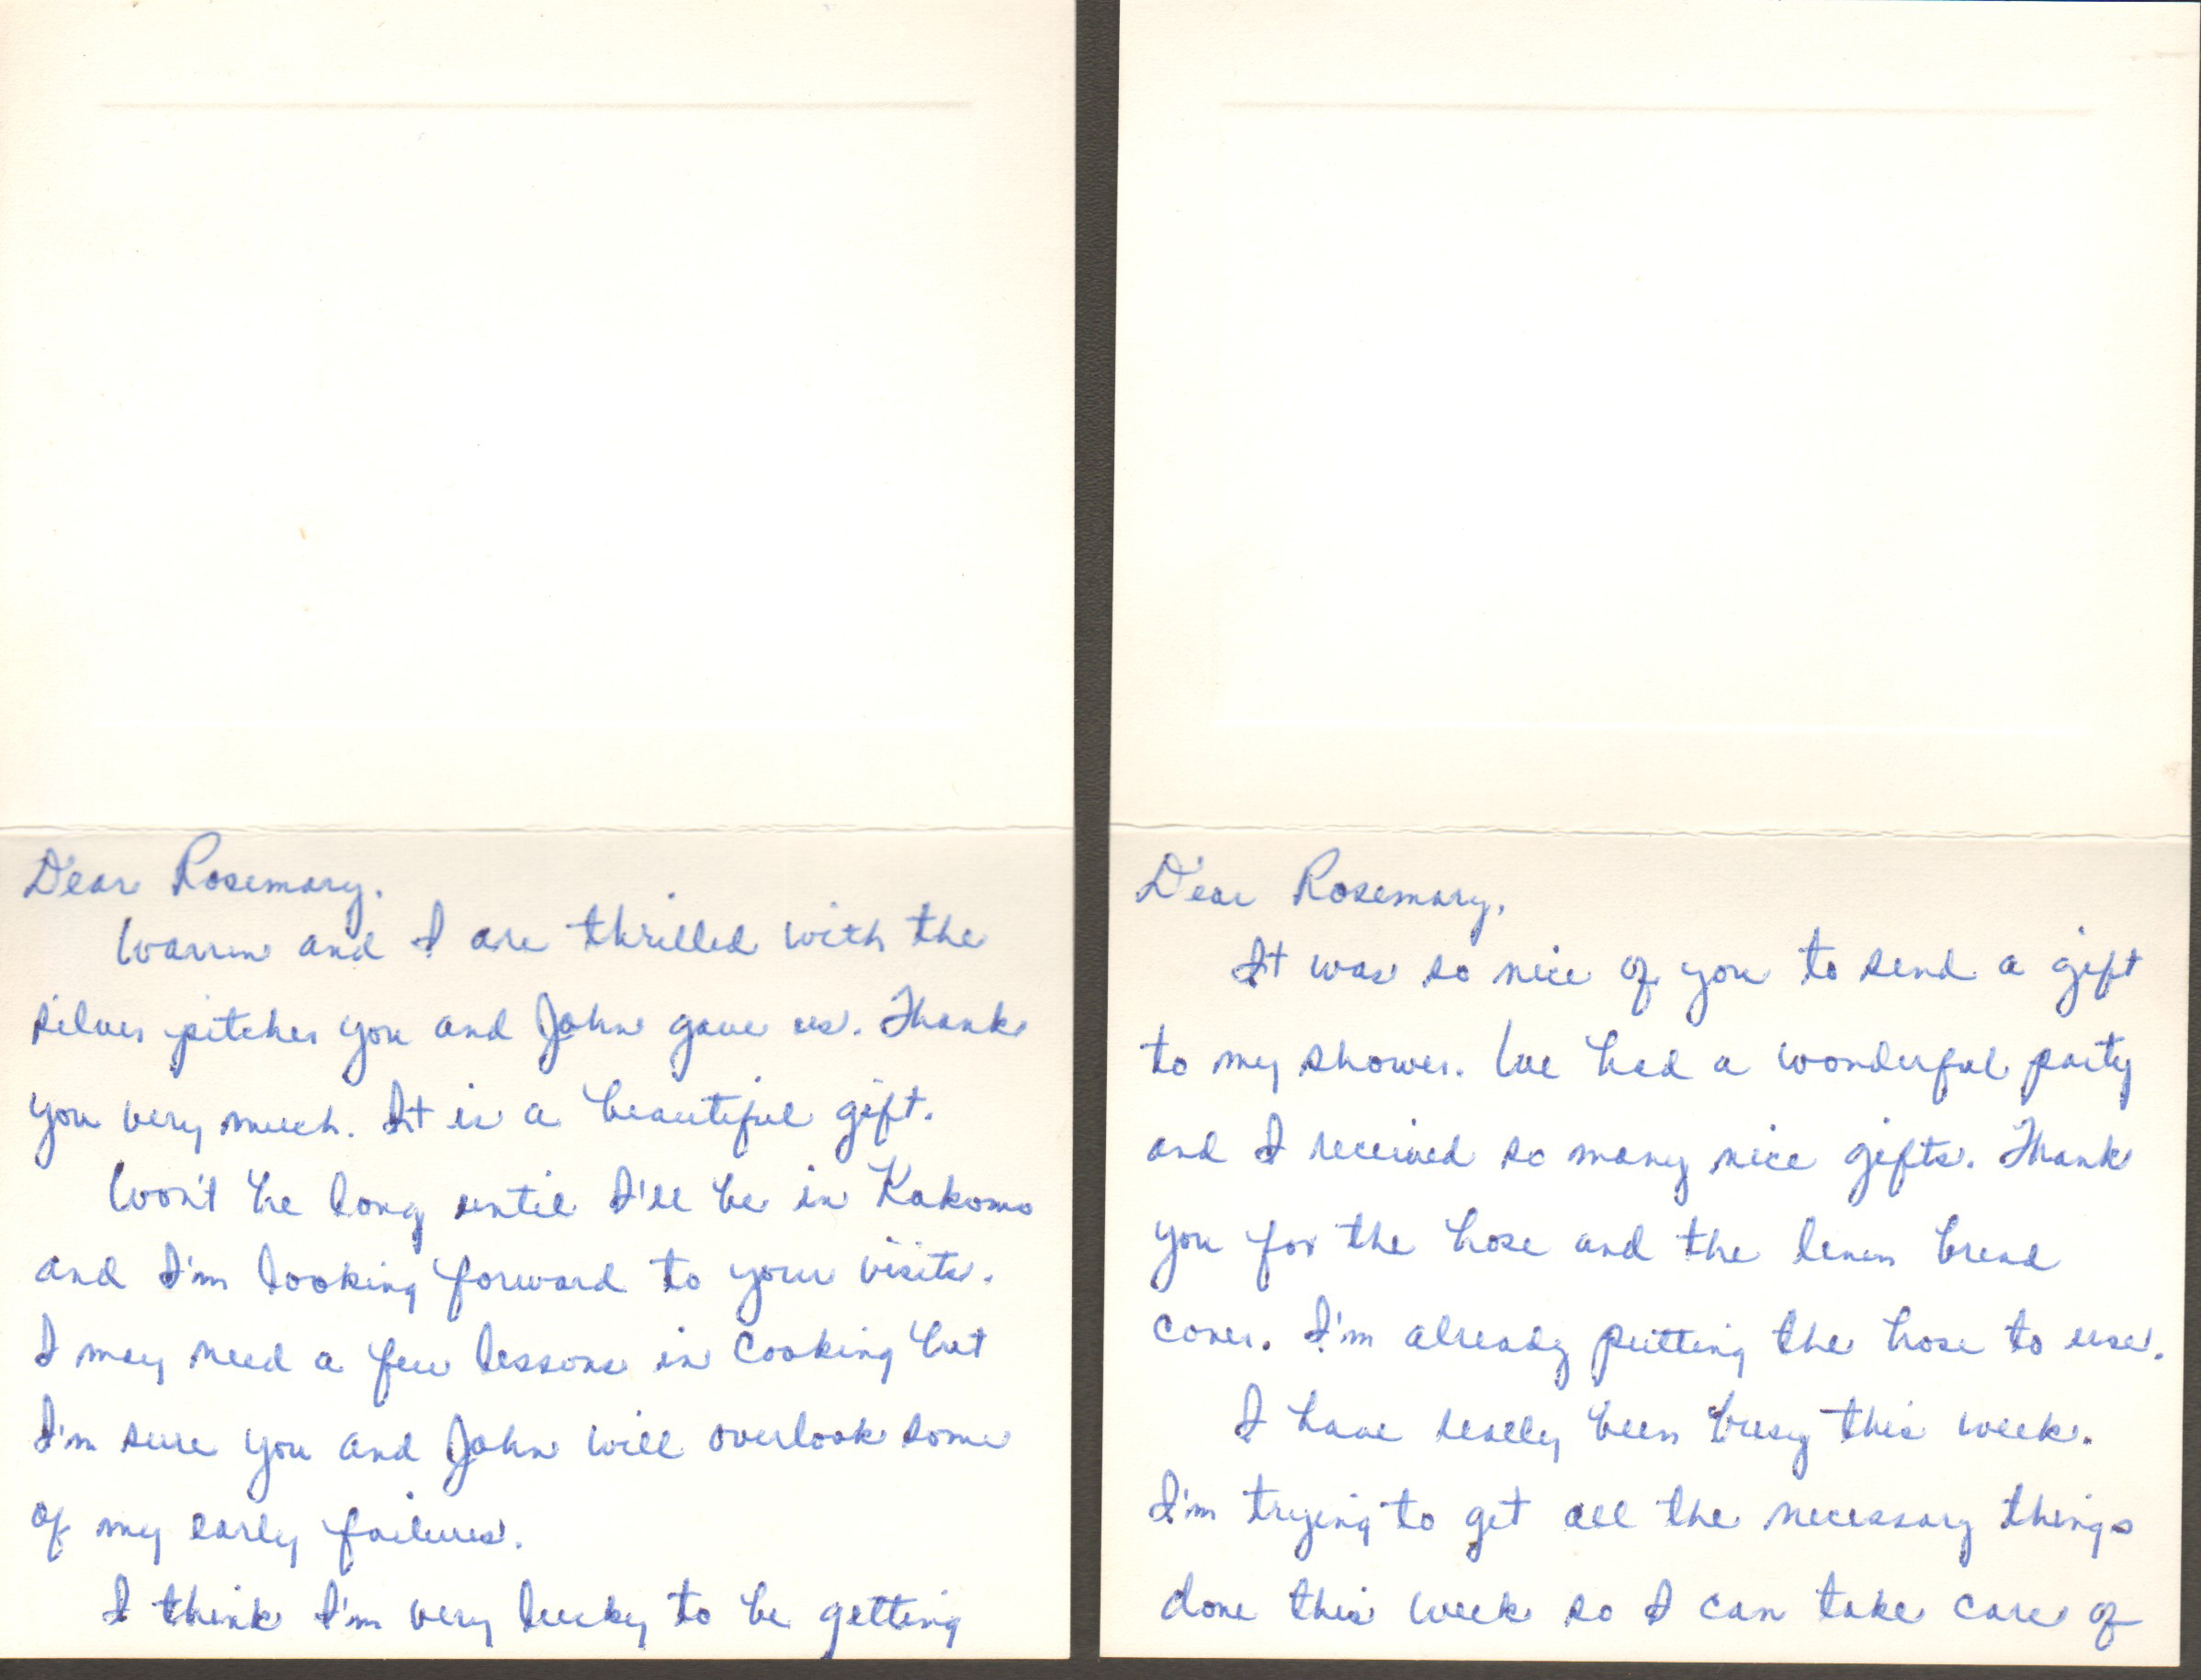 Dear Rosemary,
Warren and I are thrilled with the
silver pitcher you and John gave us. Thank
you very much. It is a beautiful gift.
Won't be long until I'll be in Kokomo
and I'm looking forward to your visits.
I may need a few lessons in cooking but
I'm sure you and John will overlook some
of my early failures.
I think I'm very lucky to be getting
Dear Rosemary,
It was so nice of you to send a gift
to my shower. We had a wonderful party
and I received so many nice gifts. Thank
you for the hose and the linen bread
cover. I'm already putting the hose to use.
I have really been busy this week.
I'm trying to get all the necessary things
done this week so I can take care of